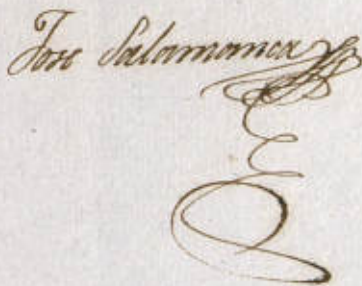 Jose Salamanca